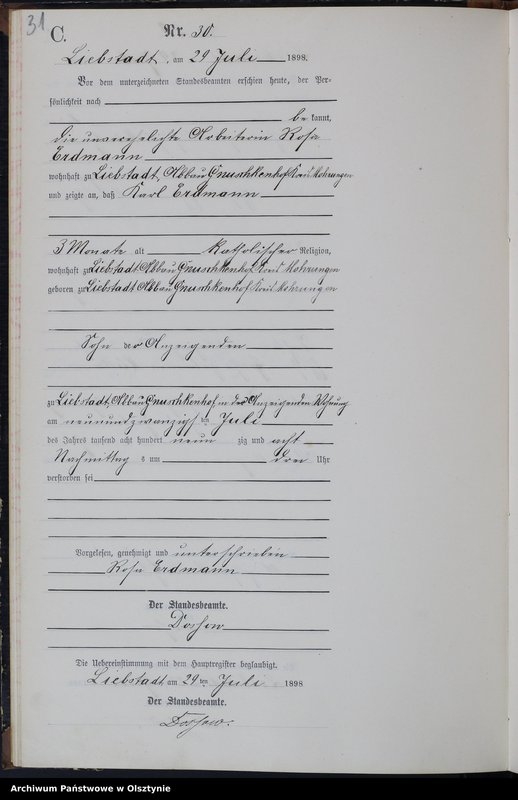 31
C.
Nr. 30.
Liebstadt, am 29 Juli 1898.
Vor dem unterzeichneten Standesbeamten erschien heute, der Per-
sönlichkeit nach
bekannt,
die unverehelichte Arbeiterin Rosa
Erdmann
wohnhaft zu Liebstadt, Abbau Gnuschkenhof Kreis Mohrungen
und zeigte an, daß Karl Erdmann
3 Monate alt katholischer Religion,
wohnhaft zu Liebstadt Abbau Gnuschkenhof Kreis Mohrungen
geboren zu Liebstadt Abbau Gnuschkenhof Kreis Mohrungen
Sohn der Anzeigenden
zu Liebstadt, Abbau Gnuschkenhof, in der Anzeigenden Wohnung
am neunundzwanzigsten Juli
des Jahres tausend acht hundert neunzig und acht
Nachmittag s um drei Uhr
verstorben sei
Vorgelesen, genehmigt und unterschrieben
Rosa Erdmann
Der Standesbeamte.
Die Uebereinstimmung mit dem Hauptregister beglaubigt.
Liebstadt am 29ten Juli 1898
Der Standesbeamte.
Archiwum Państwowe w Olsztynie